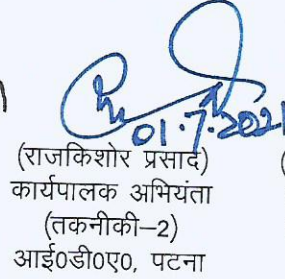 01.7.2021
(राजकिशोर प्रसाद)
कार्यपालक अभियंता
(तकनीकी–2)
आई0डी0ए0, पटना